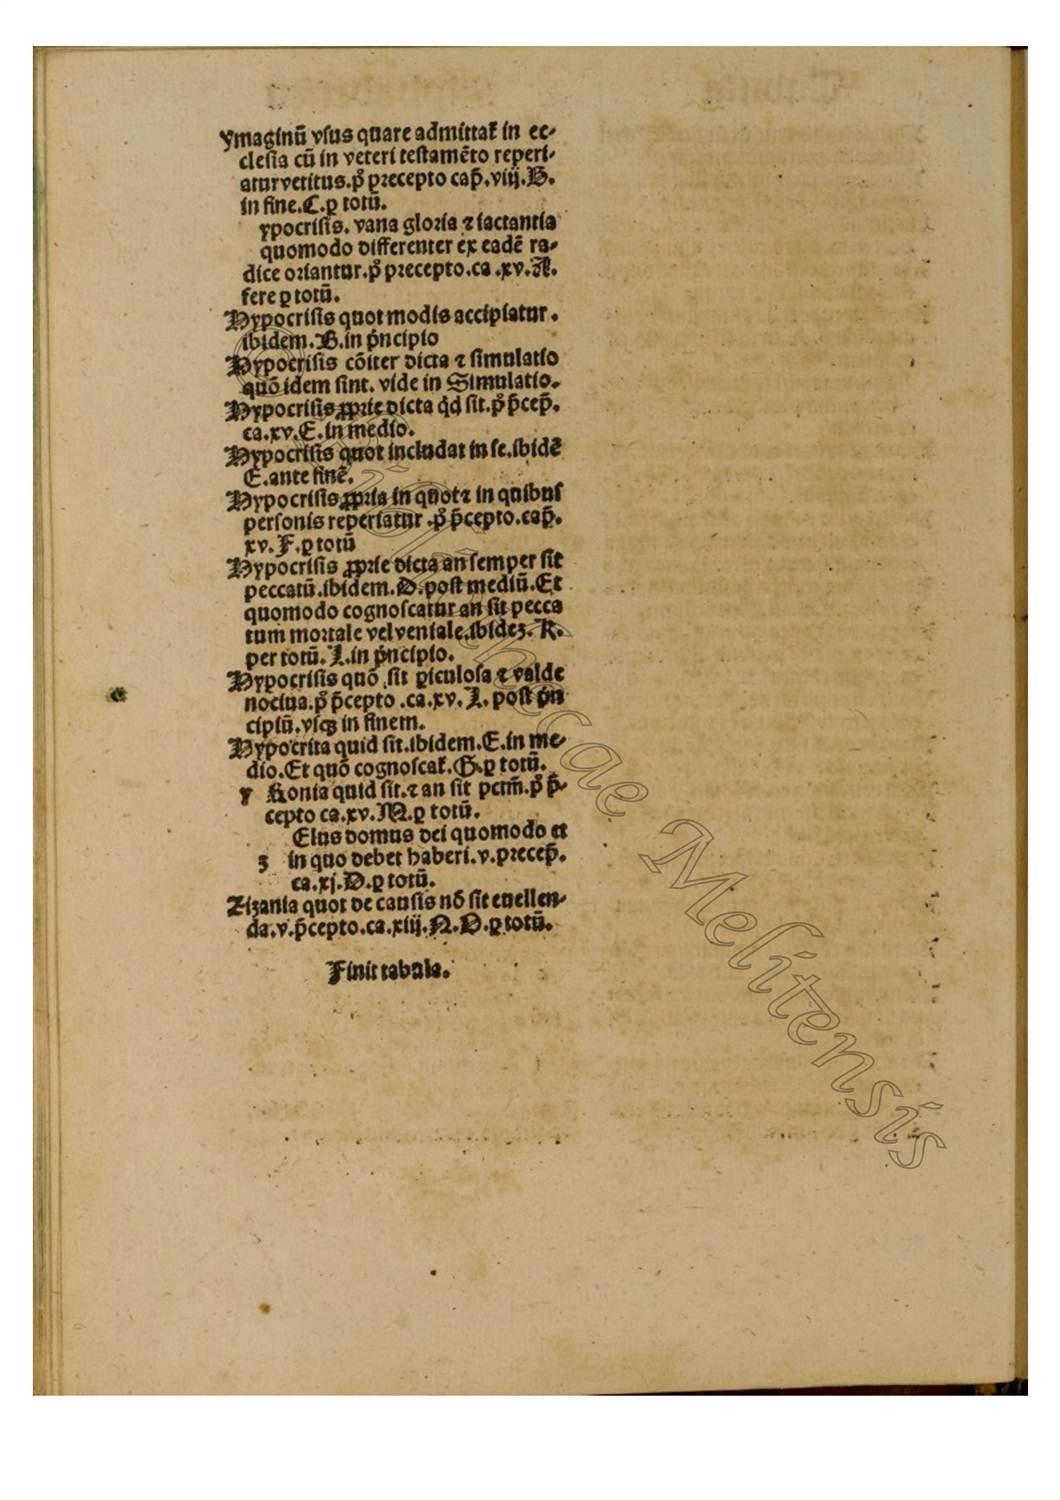 ymaginū vsus quare admittat̄ in ec-
clesia cū in veteri testamēto reperi-
aturvetitus.pͦ precepto cap̄.viij.B.
in fine.C.ꝑ totū.
ypocrisis. vana gloria ⁊ iactantia
quomodo differenter ex eadē ra-
dice oriantur.pͦ precepto.ca .xv.A.
fere ꝑ totū.
Hypocrisis quot modis accipiatur .
ibidem.B.in p̄ncipio
Hypocrisis cōiter dicta ⁊ simulatio
quō idem sint. vide in Simulatio.
Hypocrisis ꝓprie dicta qd̄ sit.pͦ p̄cep̄.
ca.xv.E.in medio.
Hypocrisis quot includat in se.ibidē
E.ante finē.
Hypocrisis ꝓpria in quot⁊ in quibus
personis reperiatur .pͦ p̄cepto.cap̄.
xv. F.ꝑ totū
Hypocrisis ꝓprie dicta an semper sit
peccatū.ibidem.D.post mediū.Et
quomodo cognoscatur an sit pecca
tum mortale velveniale.ibideꝫ. K.
per totū.I.in p̄ncipio.
Hypocrisis quō sit ꝑiculosa ⁊ valde
nociua.pͦ p̄cepto .ca.xv.I. post p̄n
cipiū.vsqꝫ in finem.
Hypocrita quid sit.ibidem.E.in me-
dio.Et quō cognoscat̄.G.ꝑ totū.
y Ronia quid sit.⁊ an sit pctm̄.pͦ p̄-
cepto ca.xv.M.ꝑ totū.
Elus domus dei quomodo et
ʒ in quo debet haberi.v.precep̄.
ca.xj.D.ꝑ totū.
Zizania quot de causis nō sit euellen-
da.v.p̄cepto.ca.xiij.N.O.ꝑ totū.
Finit tabula.
Bibliothecae Melitensis